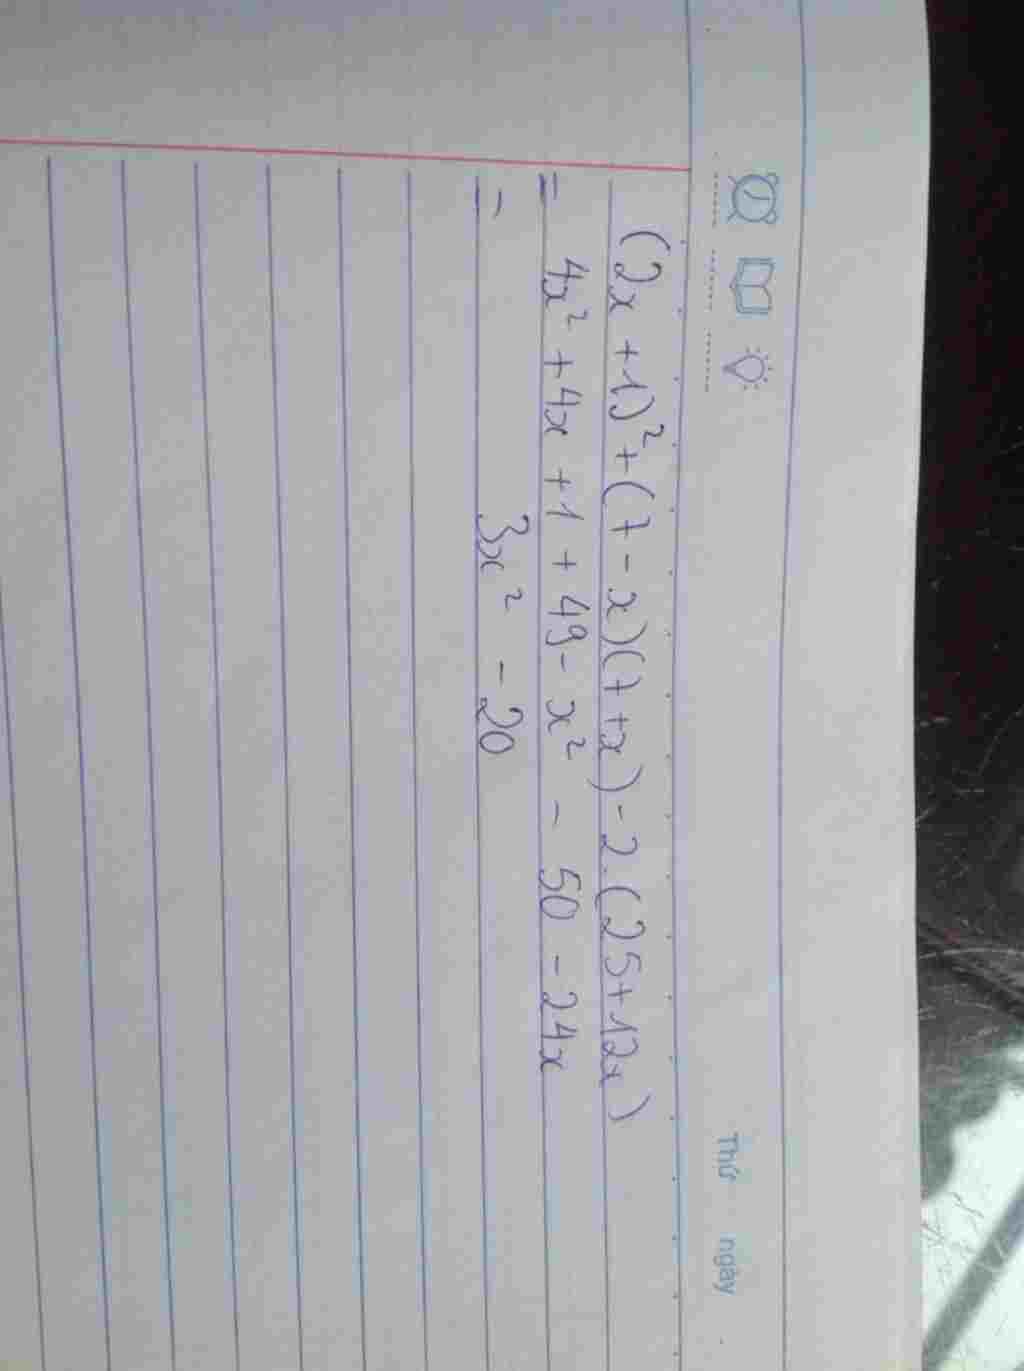 Thứ ngày
(2x + 1)² + (7 - x)(7 + x) - 2.(25 + 12x)
= 4x² + 4x + 1 + 49 - x² - 50 - 24x
= 3x² - 20